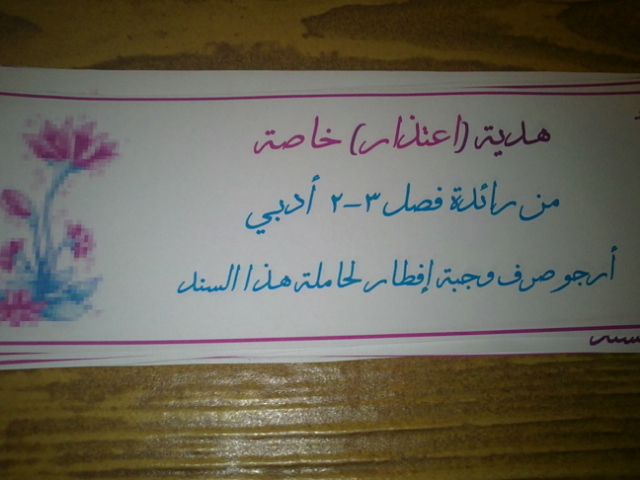 هدية (اعتذار) خاصة
من رائدة فصل ٣-٢ أدبي
أرجو صرف وجبة إفطار لحاملة هذا السند